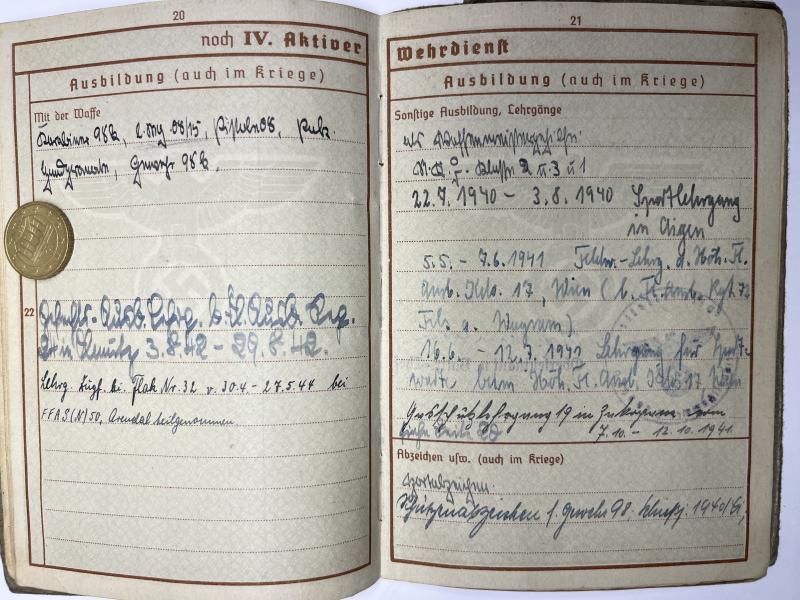 20
noch IV. Aktiver
Ausbildung (auch im Kriege)
Mit der Waffe
Karabiner 98k, l. MG 08/15, Pistole 08,
Handgranate, Gewehr 98k.
22
Gefechts-Ausb. Lehrg. b. Fl. Ausb. Reg.
in Chemnitz 3.8.42 - 29.8.42.
Lehrg. Zugf. bei Flak Nr. 32 v. 30.4. - 27.5.44 bei
FFAS(N)50, Arendal teilgenommen.
21
Wehrdienst
Ausbildung (auch im Kriege)
Sonstige Ausbildung, Lehrgänge
als
Klasse 2 u. 3 u 1
22.7.1940 - 3.8.1940 Sportlehrgang
in Aigen
5.5. - 7.6.1941 Feldw.-Lehrg. a. Höh. Fl.
Ausb. Kdo. 17, Wien (b. Fl. Ausb. Rgt. 72
Fels a. Wagram).
16.6. - 12.7.1941 Lehrgang für Sport-
warte beim Höh. Fl. Ausb. Kdo 17 Wien
19 in vom
siehe Seite 20 7.10. - 12.10.1941.
Abzeichen usw. (auch im Kriege)
Sportabzeichen
Schützenabzeichen f. Gewehr 98. Schießj. 1940/41,